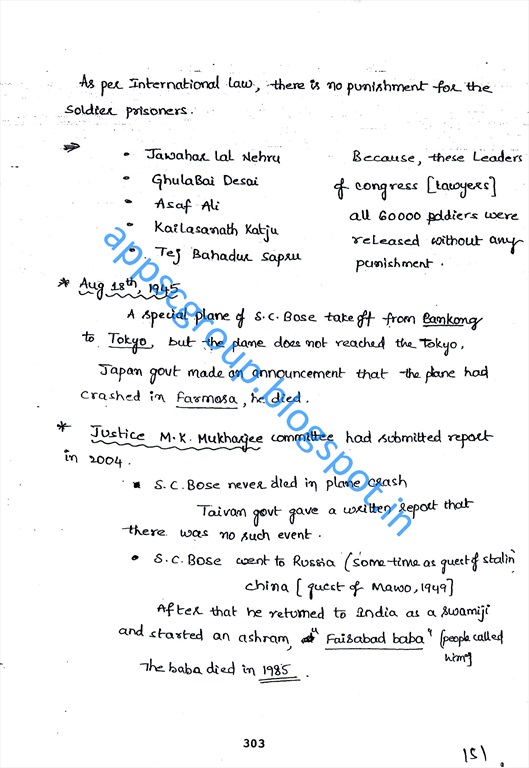 As per International law, there is no punishment for the
soldier prisoners.
• Jawahar lal Nehru
• GhulaBai Desai
• Asaf Ali
• Kailasanath Katju
• Tej Bahadur sapru
Because, these Leaders
of congress [Lawyers]
all 60000 soldiers were
released without any
punishment.
* Aug 18th, 1945
A special plane of S.C. Bose take off from Bankong
to Tokyo, but the plane does not reached the Tokyo.
Japan govt made an announcement that the plane had
crashed in Farmosa, he died.
* Justice M.K. Mukharjee committee had submitted report
in 2004.
▪ S.C. Bose never died in plane crash
Taivan govt gave a written report that
there was no such event.
• S.C. Bose went to Russia (some time as guest of stalin
china [guest of Mawo, 1949]
After that he returned to India as a swamiji
and started an ashram, "Faisabad baba" [people called
him]
The baba died in 1985.
303
151.
appscgroup.blogspot.in